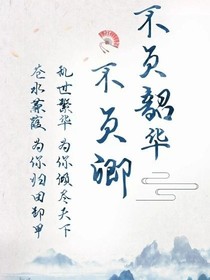 不负韶华
不负卿
乱世繁华 为你倾尽天下
苍水蒹葭 为你归田卸甲